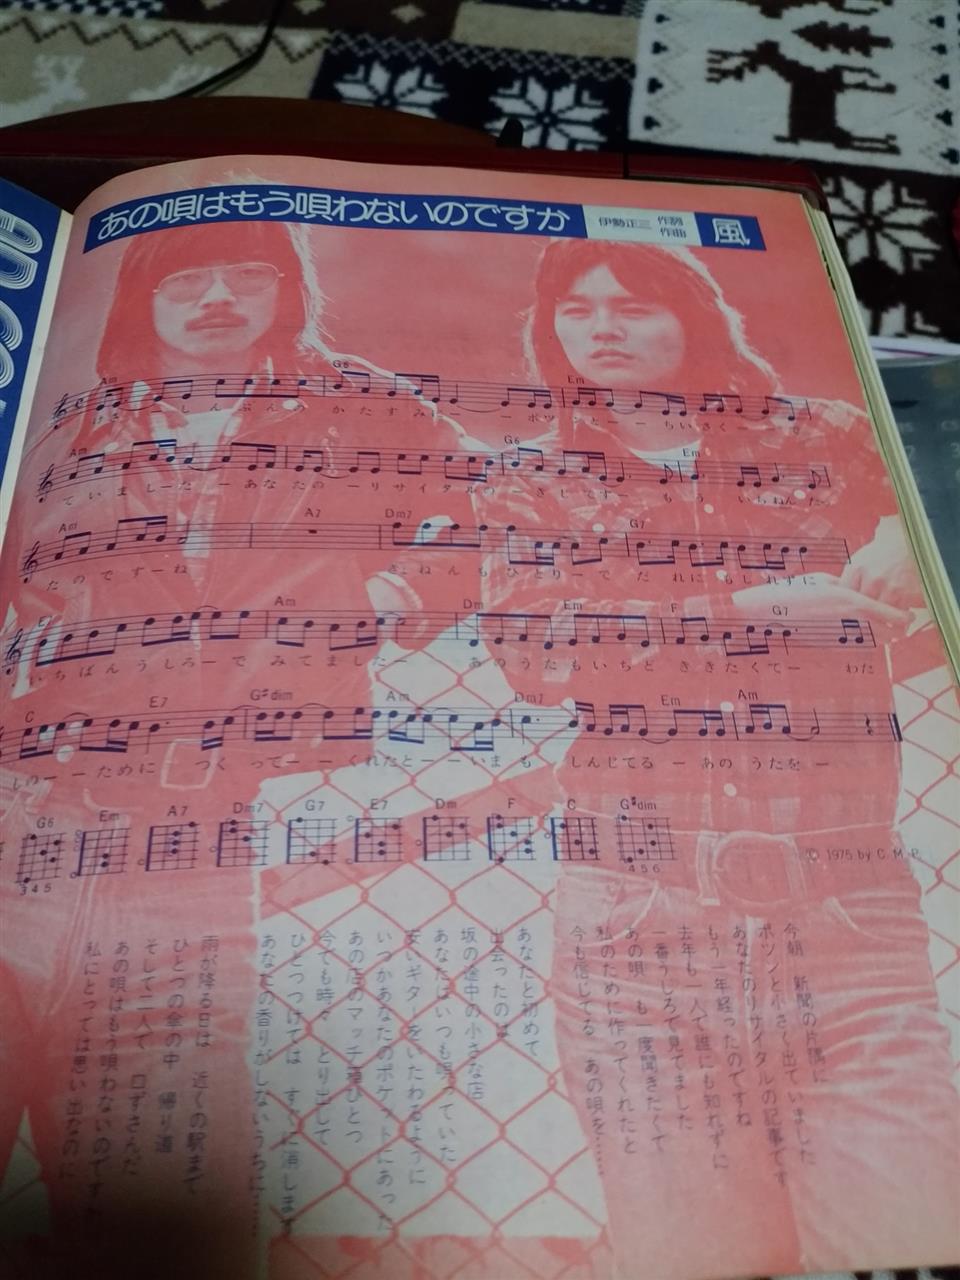 あの唄はもう唄わないのですか
伊勢正三 作詞
作曲
風
Am G6 Em
けさー しんぶんの かたすみにー ーポツンとーーちいさくーー で
Am G6 Em
ていましーたーあなたのーリサイタルのーきじですー もう いちねんたー
Am A7 Dm7 G7
たのですーね きょねんもひとりーでだれにもしれずに
E Am Dm Em F G7
いちばんうしろーでみてましたー あのうたもいちどききたくてー わた
C E7 G#dim Am Dm7 Em Am
しのーーために つくってーーくれたとーーいまも しんじてるーあのうたをー
G6 Em A7 Dm7 G7 E7 Dm F C G#dim
3 4 5
4 5 6
© 1975 by C. M. P.
今朝 新聞の片隅に
ポツンと小さく出ていました
あなたのリサイタルの記事です
もう一年経ったのですね
去年も一人で誰にも知れずに
一番うしろで見てました
あの唄 も一度聞きたくて
私のために作ってくれたと
今も信じてる あの唄を……
あなたと初めて
出会ったのは
坂の途中の小さな店
あなたはいつも唄っていた
安いギターをいたわるように
いつかあなたのポケットにあった
あの店のマッチ箱ひとつ
今でも時々 とり出して
ひとつつけては すぐに消します
あなたの香りがしないうちに……
雨が降る日は 近くの駅まで
ひとつの傘の中 帰り道
そして二人で 口ずさんだ
あの唄はもう唄わないのですか
私にとっては思い出なのに